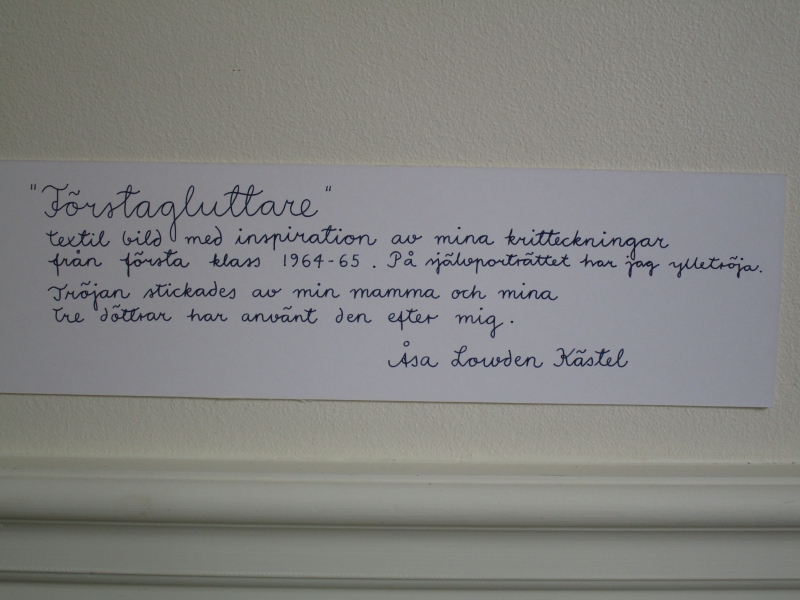 "Förstagluttare"
textil bild med inspiration av mina kritteckningar
från första klass 1964-65. På självporträttet har jag ylletröja.
Tröjan stickades av min mamma och mina
tre döttrar har använt den efter mig.
Åsa Lowden Kästel